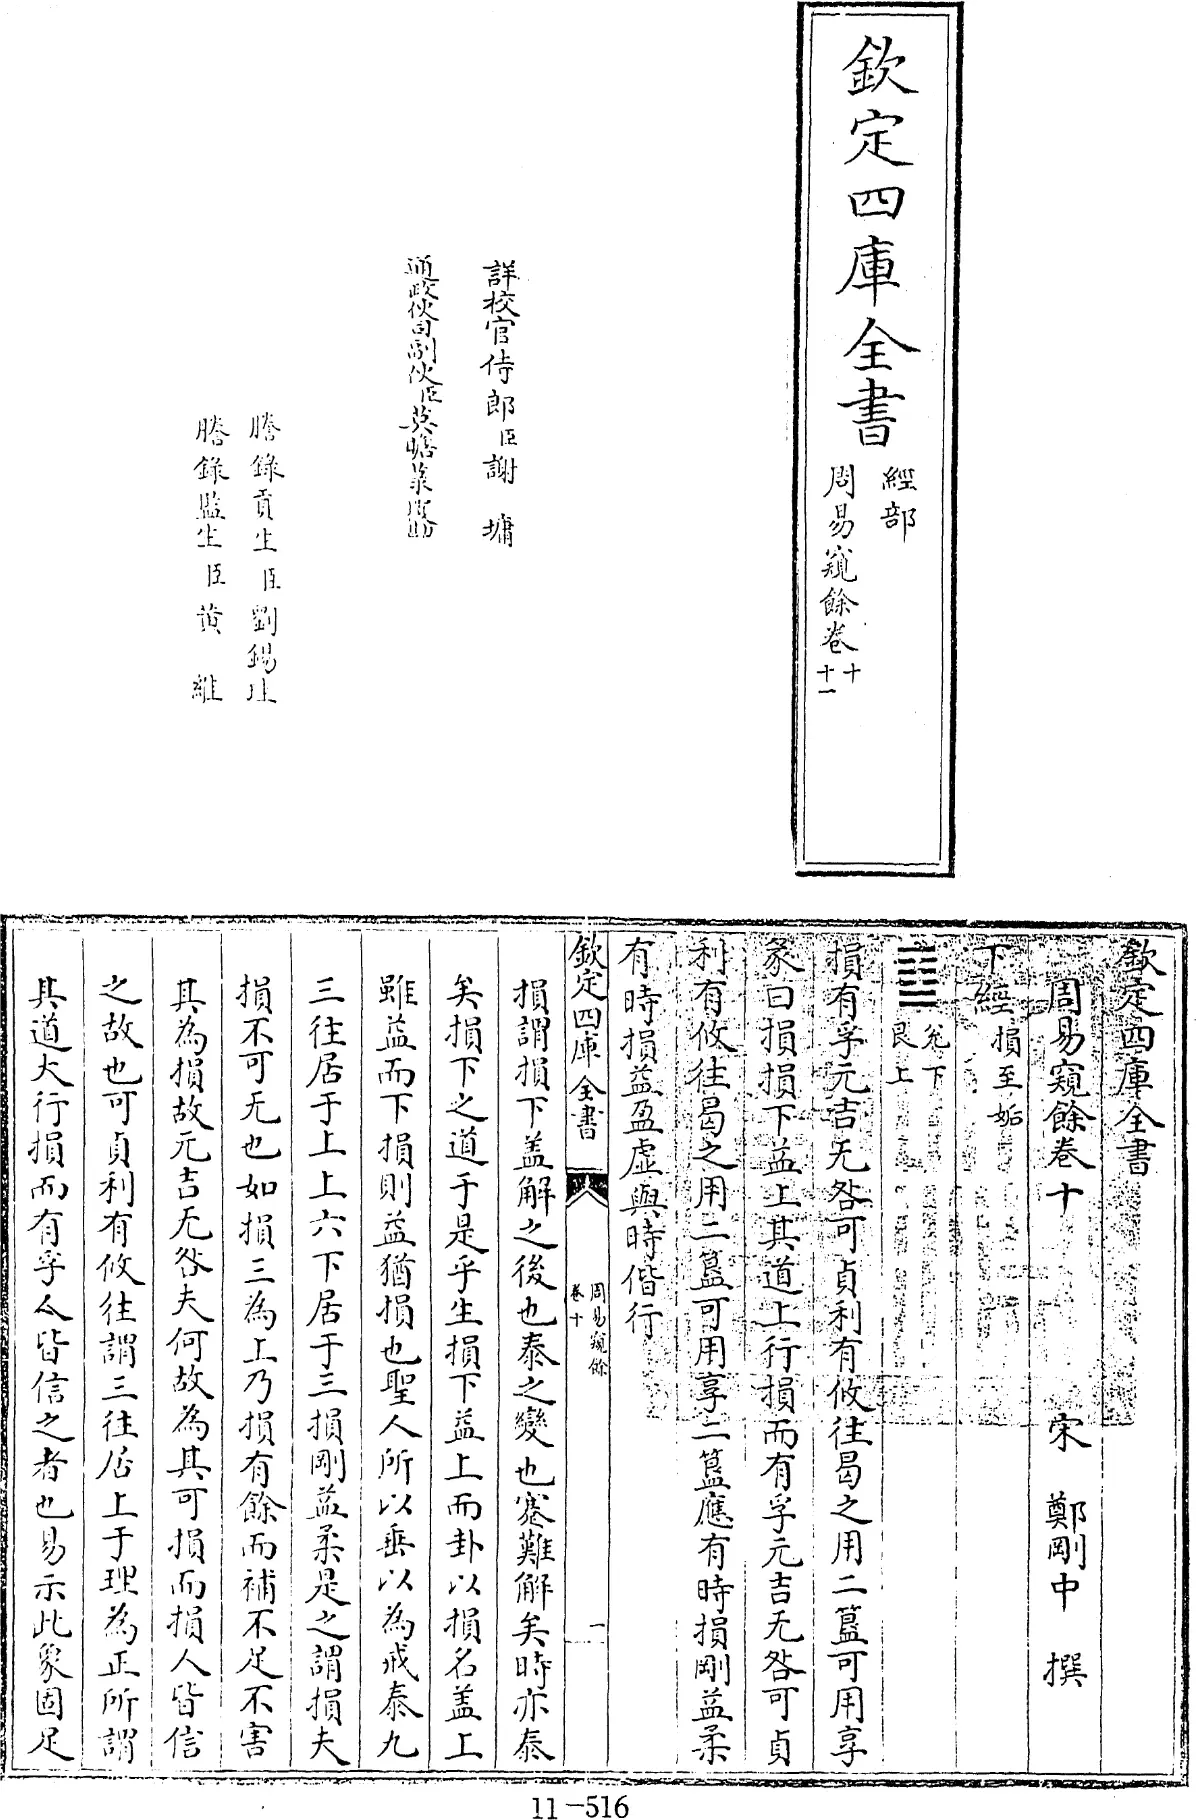 欽定四庫全書
經部
周易窺餘卷十
十一
詳校官侍郎臣謝墉
通政使司副使臣莫瞻菉覆勘
謄錄貢生臣劉錫
謄錄監生臣黃維
欽定四庫全書
周易窺餘卷十
宋 鄭剛中 撰
下經 損至姤
䷨ 兌下
艮上
損有孚元吉无咎可貞利有攸往曷之用二簋可用享
彖曰損損下益上其道上行損而有孚元吉无咎可貞
利有攸往曷之用二簋可用享二簋應有時損剛益柔
有時損益盈虛與時偕行
欽定四庫全書
周易窺餘
卷十
一
損謂損下蓋解之後也泰之變也蹇難解矣時亦泰
矣損下之道于是乎生損下益上而卦以損名蓋上
雖益而下損則益猶損也聖人所以垂以為戒泰九
三往居于上上六下居于三損剛益柔是之謂損夫
損不可无也如損三為上乃損有餘而補不足不害
其為損故元吉无咎夫何故為其可損而損人皆信
之故也可貞利有攸往謂三往居上于理為正所謂
其道大行損而有孚人皆信之者也易示此象固足
11-516